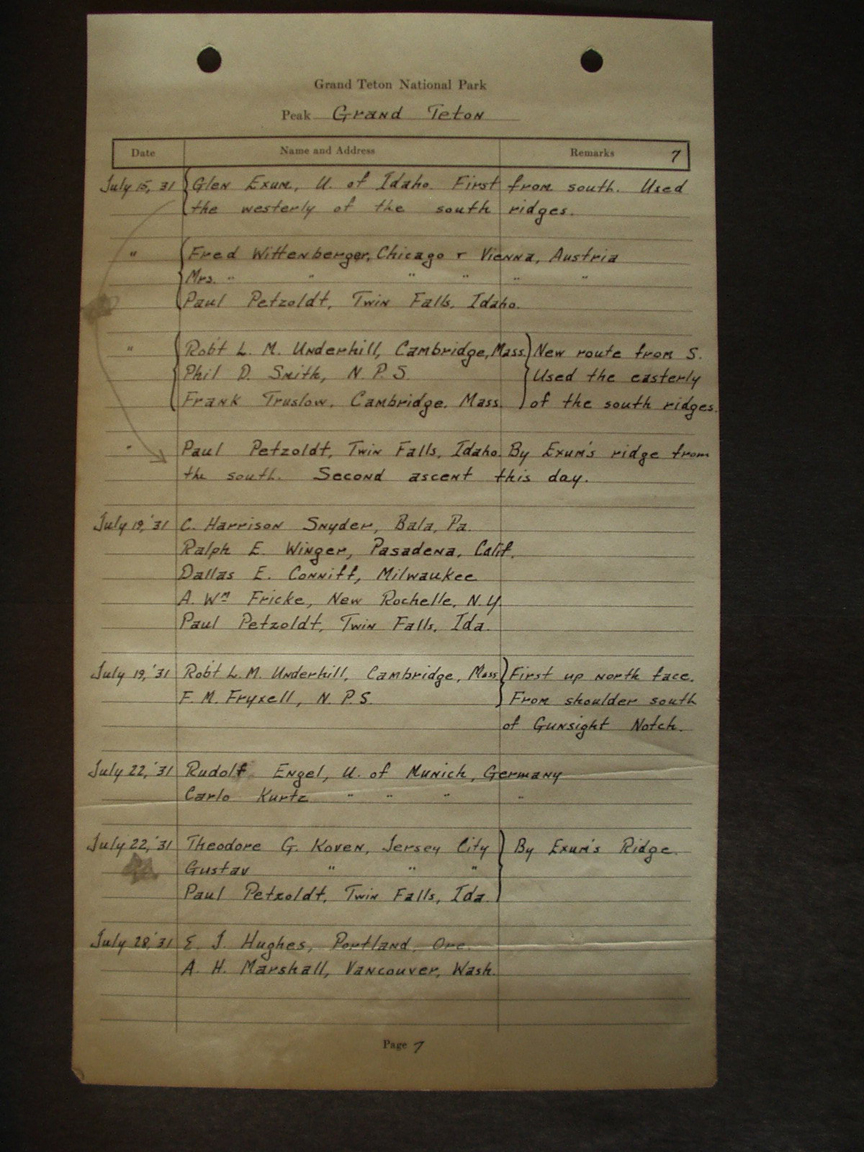 Grand Teton National Park
Peak Grand Teton
Date Name and Address Remarks 7
July 15, 31 Glen Exum, U. of Idaho. First from south. Used
the westerly of the south ridges.
" Fred Wittenberger, Chicago & Vienna, Austria
Mrs. " " " " " "
Paul Petzoldt, Twin Falls, Idaho.
" Robt L. M. Underhill, Cambridge, Mass. New route from S.
Phil D. Smith, N.P.S. Used the easterly
Frank Truslow, Cambridge, Mass. of the south ridges.
" Paul Petzoldt, Twin Falls, Idaho. By Exum's ridge from
the south. Second ascent this day.
July 19, '31 C. Harrison Snyder, Bala, Pa.
Ralph E. Winger, Pasadena, Calif.
Dallas E. Conniff, Milwaukee
A. Wm Fricke, New Rochelle, N.Y.
Paul Petzoldt, Twin Falls, Ida.
July 19, '31 Robt L. M. Underhill, Cambridge, Mass First up north face.
F. M. Fryxell, N.P.S. From shoulder south
of Gunsight Notch.
July 22, '31 Rudolf Engel, U. of Munich, Germany
Carlo Kurtz " " " "
July 22, '31 Theodore G. Koven, Jersey City By Exum's Ridge.
Gustav " " "
Paul Petzoldt, Twin Falls, Ida.
July 28, '31 E. J. Hughes, Portland, Ore.
A. H. Marshall, Vancouver, Wash.
Page 7